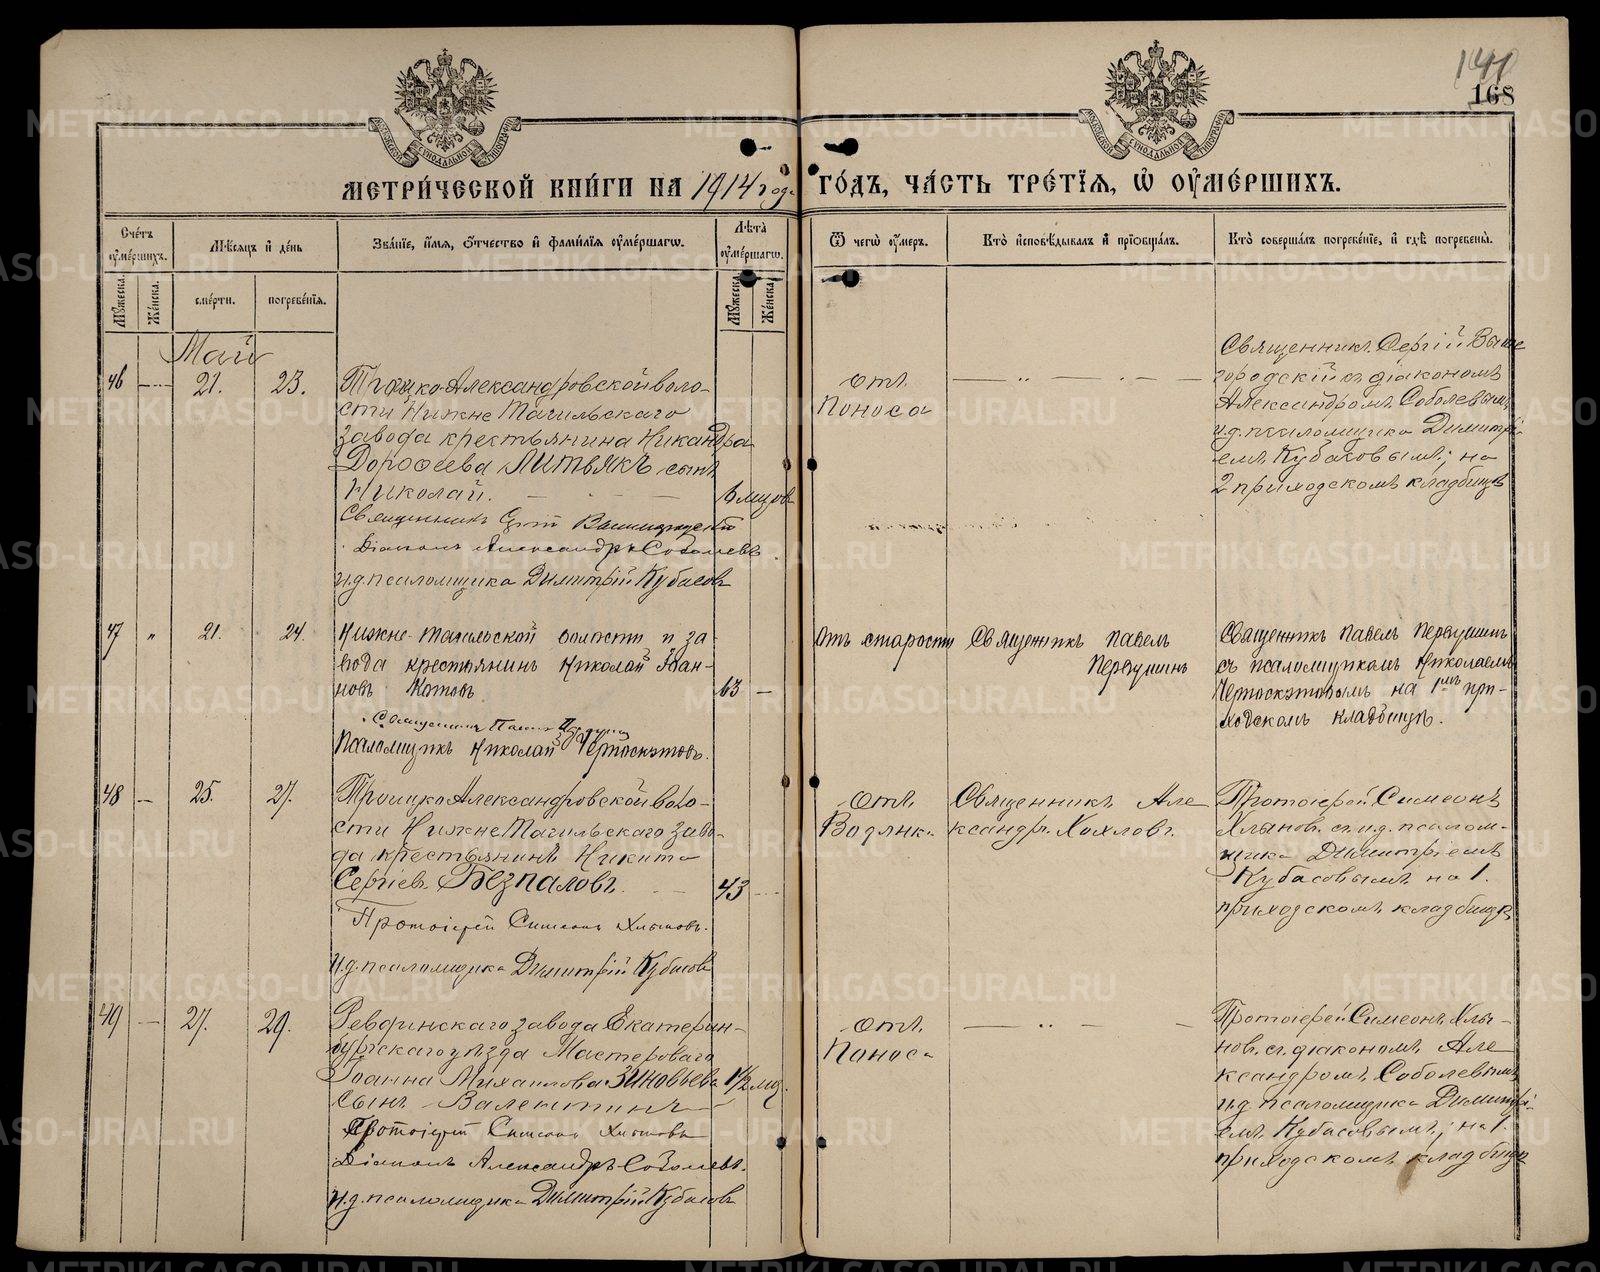 141
168
МЕТРИ́ЧЕСКОЙ КНИ́ГИ НА 1914 года ГО́ДЪ, ЧА́СТЬ ТРЕ́ТЇѦ, Ѡ҆ ОУ҆МЕ́РШИХЪ.
Счетъ оумершихъ.
Мѣсяцъ и день
Званїе, имя, отчество и фамилїя оумершагѡ.
Лѣта оумершагѡ.
Ѿ чегѡ оумеръ.
Кто исповѣдывалъ и прїобщалъ.
Кто совершалъ погребенїе, и гдѣ погребены.
Мужеска.
Женска.
смерти.
погребенїя.
Мужеска
Женска.
Май
46 — 21. 23.
Троицко-Александровской воло-
сти Нижне Тагильскаго
завода крестьянина Никандра
Дорофеева Литвякъ сынъ
Николай.
6 мцов
Священникъ Сергій Вышегородскій
Діаконъ Александръ Соболевъ.
и.д. псаломщика Димитрій Кубасовъ
отъ
Поноса
Священникъ Сергій Выше
городскій съ діакономъ
Александромъ Соболевым,
и.д. псаломщика Димитрі-
емъ Кубасовымъ; на
2 приходскомъ кладбищѣ
47 " 21. 24.
Нижне-Тагильской волости и за-
вода крестьянинъ Николай Іван-
новъ Котовъ
63 —
Священникъ Павелъ Первушинъ
Псаломщикъ Николай Чертоскэтовъ.
Отъ старости
Священникъ Павелъ
Первушинъ
Священникъ Павелъ Первушинъ
съ псаломщикомъ Николаемъ
на 1мъ при-
ходскомъ кладбищѣ.
48 — 25. 27.
Троицко Александровской воло-
сти Нижне Тагильскаго заво-
да крестьянинъ Никита
Сергіевъ Безпаловъ.
43
Протоіерей Симеонъ Хлыновъ.
и.д. псаломщика Димитрій Кубасовъ
отъ
Водянки
Священникъ Але
ксандръ Хохловъ.
Протоіерей Симеонъ
Хлыновъ съ и.д. псалом-
щика Димитріемъ
Кубасовымъ на 1.
приходскомъ кладбищѣ
49 — 27. 29.
Ревдинскаго завода Екатерин-
бургскаго уѣзда Мастероваго
Іоанна Михаилова Зиновьева
сынъ Валентинъ
1 1/2 мц.
Протоіерей Симеонъ Хлыновъ
Діаконъ Александръ Соболевъ.
и.д. псаломщика Димитрій Кубасовъ
отъ
Поноса
Протоіерей Симеонъ Хлы-
новъ съ діакономъ Але
ксандромъ Соболевымъ
и.д. псаломщика Димитрі-
емъ Кубасовымъ, на 1.
приходскомъ кладбищѣ
METRIKI.GASO-URAL.RU